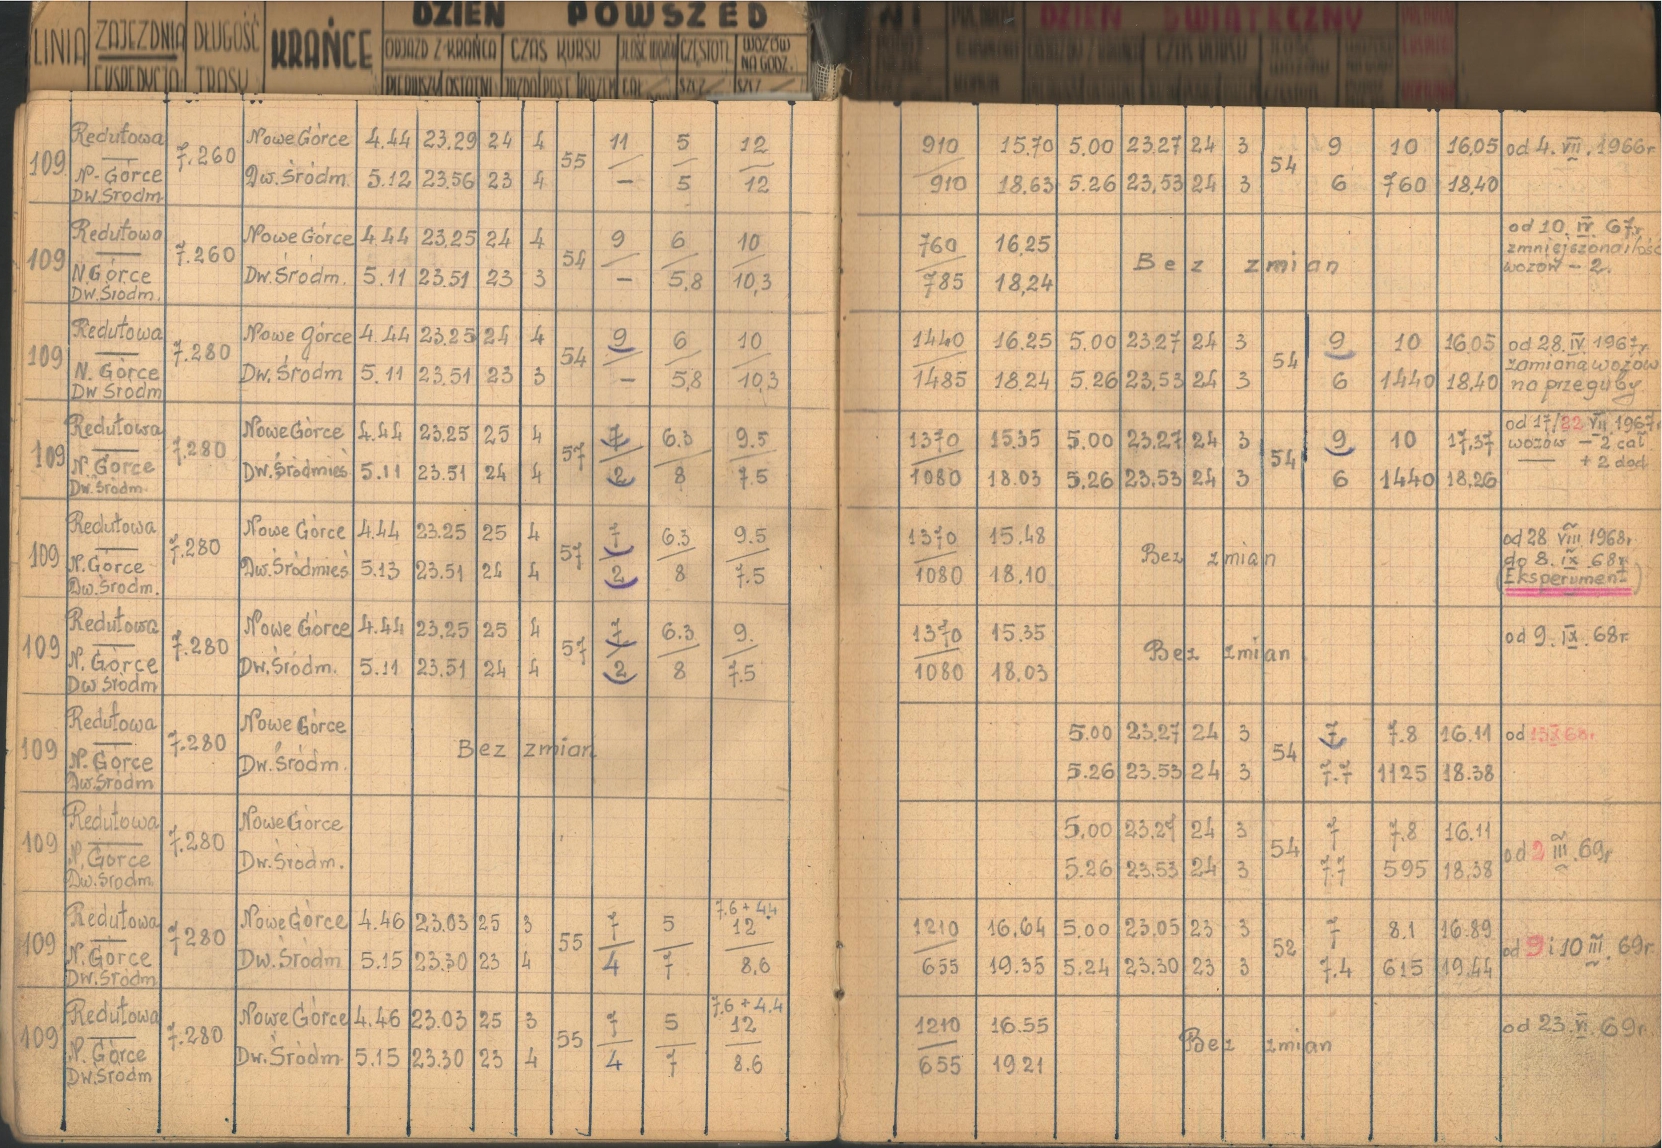 DZIEŃ POWSZED
LINIA ZAJEZDNIA DŁUGOŚĆ KRAŃCE ODJAZD Z KRAŃCA CZAS KURSU CZĘSTOTL WOZÓW
EKSPEDYCJA TRASY NA GODZ.
DZIEŃ ŚWIĄTECZNY
Redutowa Nowe Górce 4.44 23.29 24 4 11 5 12 910 15,70 5.00 23.27 24 3 9 10 16,05 od 4. VII. 1966r.
109 7.260 55 54
N-Górce Dw.Śródm. 5.12 23.56 23 4 – 5 12 910 18,63 5.26 23,53 24 3 6 760 18,40
Dw Śródm
Redutowa Nowe Górce 4.44 23.25 24 4 9 6 10 760 16,25 od 10. IV. 67r.
109 7.260 54 Bez zmian zmniejszona ilość
N.Górce Dw.Śródm. 5.11 23.51 23 3 – 5,8 10,3 785 18,24 wozów – 2.
Dw.Śródm.
Redutowa Nowe Górce 4.44 23.25 24 4 9 6 10 1440 16.25 5.00 23.27 24 3 9 10 16,05 od 28. IV. 1967r.
109 7.280 54 54 zamiana wozów
N. Górce Dw. Śródm 5.11 23.51 23 3 – 5,8 10,3 1485 18,24 5.26 23,53 24 3 6 1440 18,40 na przeguby.
Dw Śródm
Redutowa Nowe Górce 4.44 23.25 25 4 7 6.3 9.5 1370 15.35 5.00 23.27 24 3 9 10 17,37 od 17/22 VII 1967r.
109 7.280 57 54 wozów – 2 cał
N. Górce Dw.Śródmieś 5.11 23.51 24 4 2 8 7.5 1080 18.03 5.26 23,53 24 3 6 1440 18,26 + 2 dod.
Dw.Śródm.
Redutowa Nowe Górce 4.44 23.25 25 4 7 6.3 9.5 1370 15.48 od 28 VIII 1968r.
109 7.280 57 Bez zmian do 8. IX .68r.
N.Górce Dw.Śródmieś 5.13 23.51 24 4 2 8 7.5 1080 18,10 (Eksperyment)
Dw.Śródm.
Redutowa Nowe Górce 4.44 23,25 25 4 7 6.3 9. 1370 15.35 od 9. IX. 68r.
109 7.280 57 Bez zmian
N. Górce Dw.Śródm. 5.11 23.51 24 4 2 8 7.5 1080 18,03
Dw Śródm
Redutowa Nowe Górce 5.00 23,27 24 3 7 7.8 16.11 od
109 7.280 Bez zmian 54
N. Górce Dw.Śródm. 5.26 23.53 24 3 7.7 1125 18.38
Dw.Śródm
Redutowa Nowe Górce 5,00 23,27 24 3 7 7.8 16.11
109 7.280 54 od 2 III .69r
N. Górce Dw.Śródm. 5.26 23.53 24 3 7.7 595 18,38
Dw.Śródm.
7.6 + 4.4
Redutowa Nowe Górce 4.46 23.03 25 3 7 5 12 1210 16,64 5.00 23,05 23 3 7 8.1 16.89
109 7.280 55 52 od 9 i 10 III . 69r.
N. Górce Dw.Śródm 5.15 23.30 23 4 4 7 8,6 655 19.35 5.24 23.30 23 3 7.4 615 19,44
Dw.Śródm.
7.6 + 4.4
Redutowa Nowe Górce 4.46 23.03 25 3 7 5 12 1210 16.55 od 23. VI. 69r.
109 7.280 55 Bez zmian
N. Górce Dw.Śródm 5.15 23.30 23 4 4 7 8.6 655 19.21
Dw.Śródm